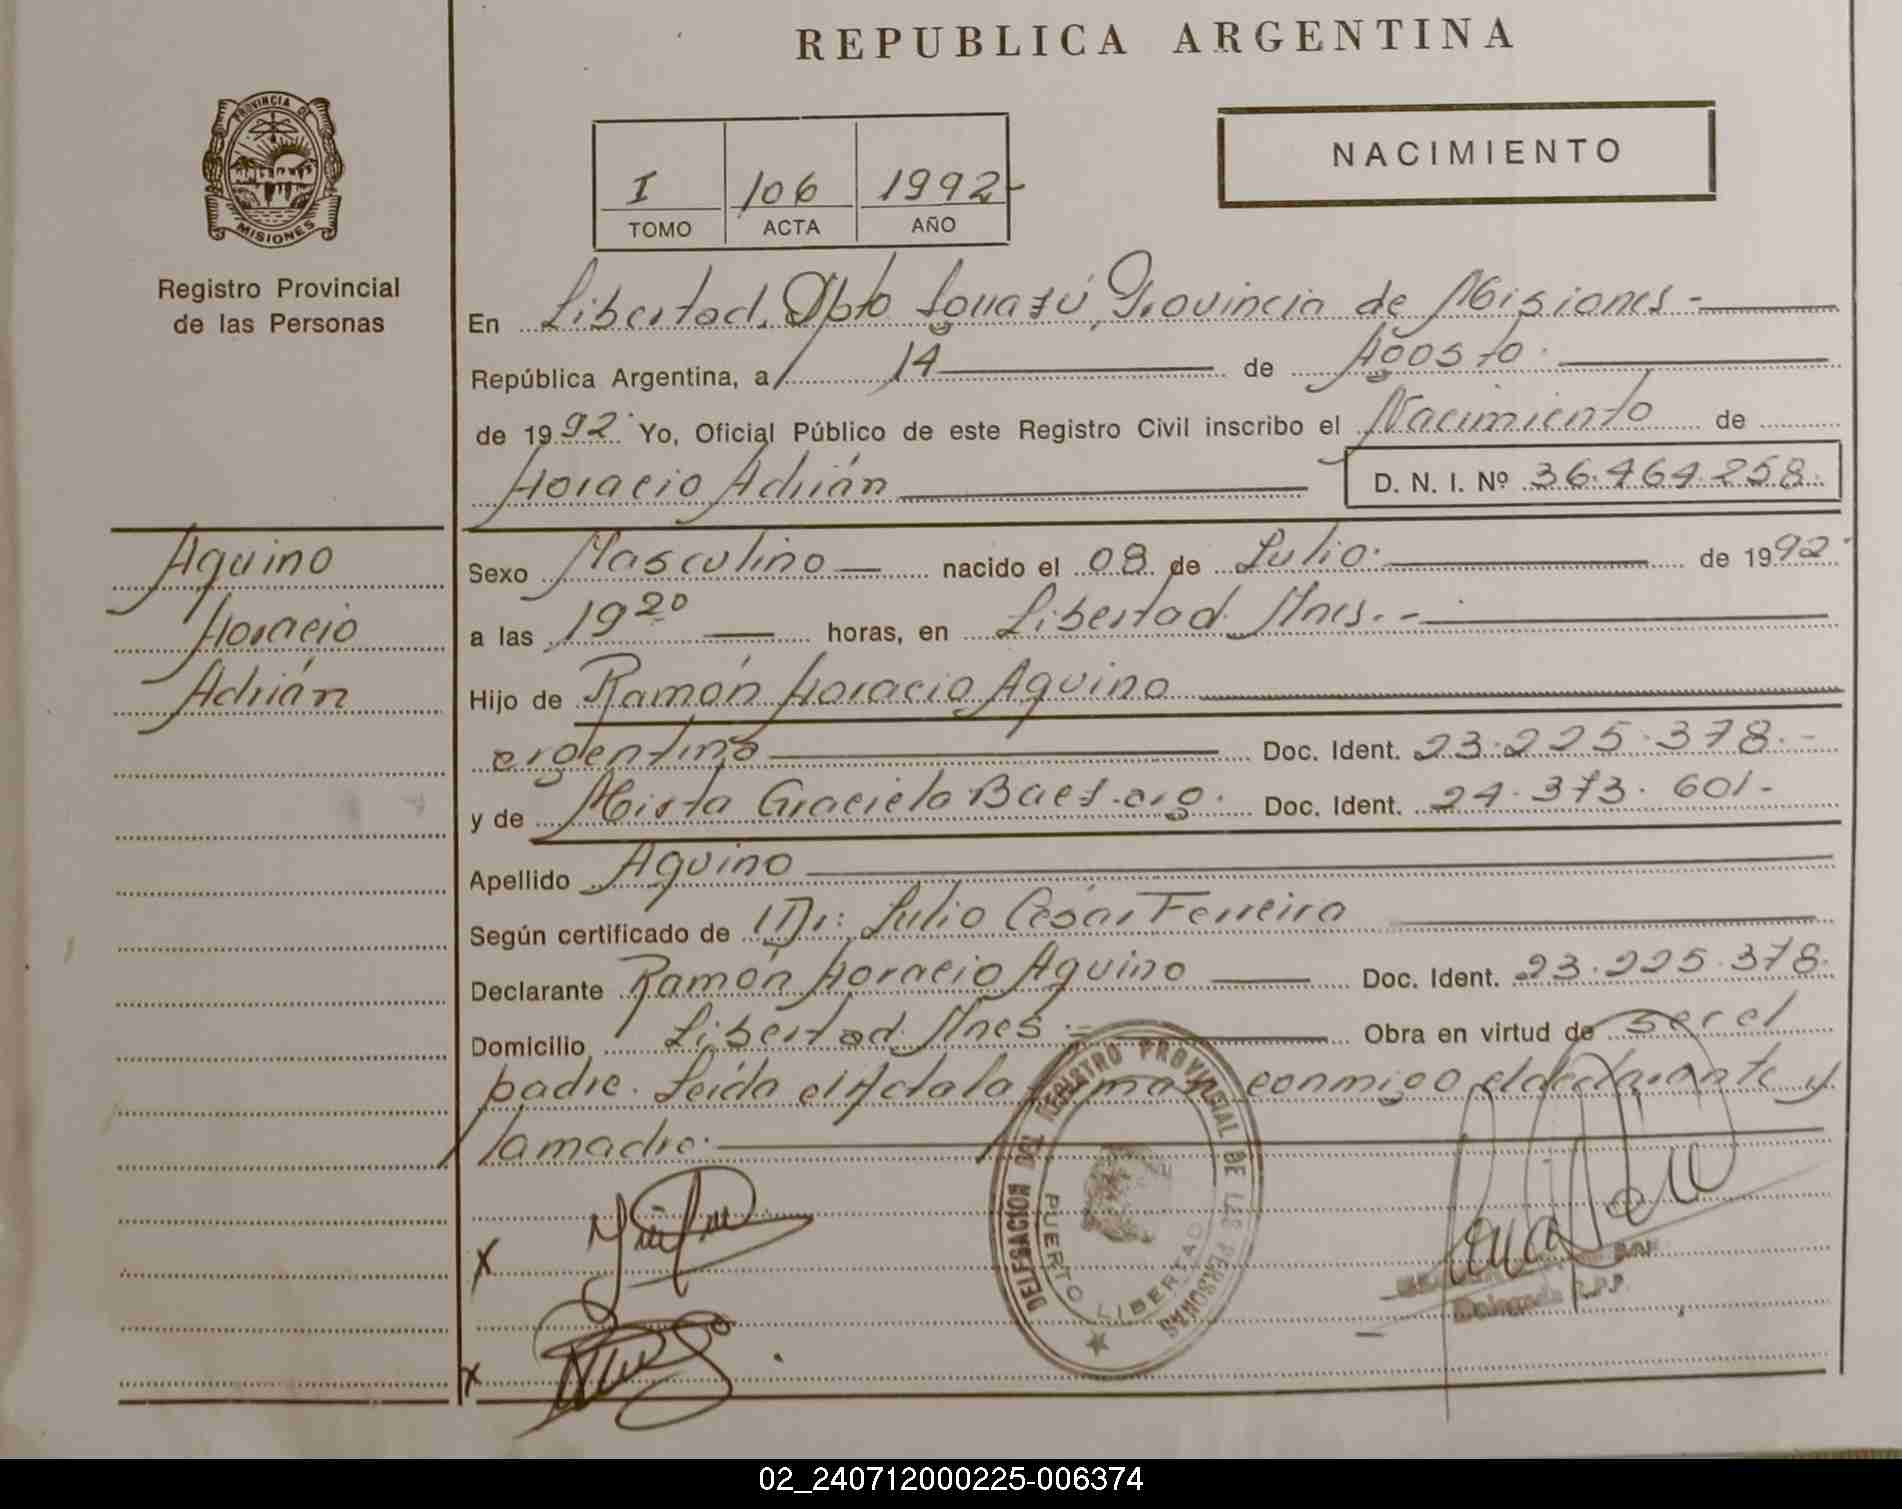 REPUBLICA ARGENTINA
PROVINCIA DE
MISIONES
Registro Provincial
de las Personas
I 106 1992-
TOMO ACTA AÑO
NACIMIENTO
En Libertad, Dpto Iguazú, Provincia de Misiones -
República Argentina, a 14 de Agosto.
de 1992. Yo, Oficial Público de este Registro Civil inscribo el Nacimiento de
Horacio Adrián D. N. I. Nº 36.464.258.
Aquino
Horacio
Adrián
Sexo Masculino nacido el 08 de Julio. de 1992.
a las 19 20 horas, en Libertad Mnes. -
Hijo de Ramón Horacio Aquino
argentino Doc. Ident. 23.225.378.-
y de Mirta Graciela Baez. arg. Doc. Ident. 24.373.601-
Apellido Aquino
Según certificado de Dr: Julio César Ferreira
Declarante Ramón Horacio Aquino Doc. Ident. 23.225.378.
Domicilio Libertad Mnes. - Obra en virtud de ser el
padre. Leída el Acta la firman conmigo el declarante y
la madre.
DELEGACION DEL REGISTRO PROVINCIAL DE LAS PERSONAS
PUERTO LIBERTAD
X
X
Delegada R.P.P.
02_240712000225-006374